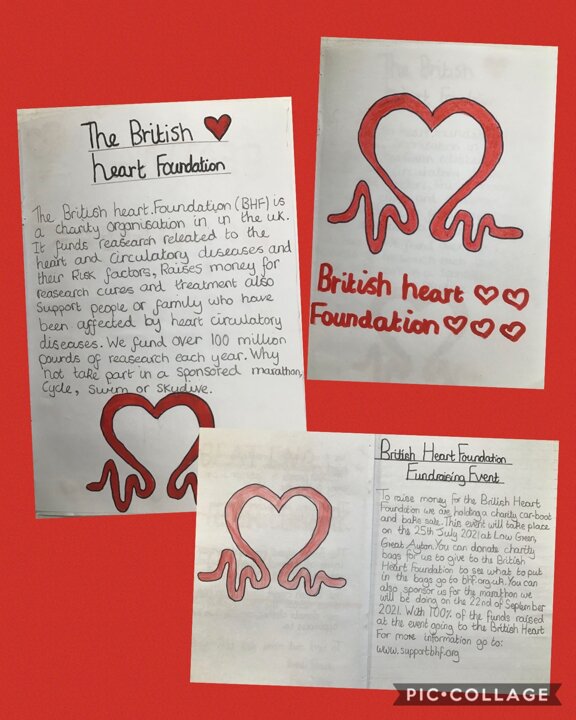 The British
heart Foundation
The British heart.Foundation (BHF) is
a charity organisation in in the uk.
It funds reasearch releated to the
heart and Circulatory diseases and
their Risk factors, Raises money for
reasearch cures and treatment also
Support people or family who have
been affected by heart circulatory
diseases. We fund over 100 million
pounds of reasearch each year. Why
not take part in a sponsored marathon,
Cycle, swim or skydive.
British heart
Foundation
British Heart Foundation
Fundraising Event
To raise money for the British Heart
Foundation we are holding a charity car-boot
and bake sale. This event will take place
on the 25th July 2021 at Low Green,
Great Ayton. You can donate charity
bags for us to give to the British
Heart Foundation to see what to put
in the bags go to bhf.org.uk. You can
also sponsor us for the marathon we
will be doing on the 22nd of September
2021. With 100% of the funds raised
at the event going to the British Heart
For more information go to:
www.supportbhf.org
PIC•COLLAGE